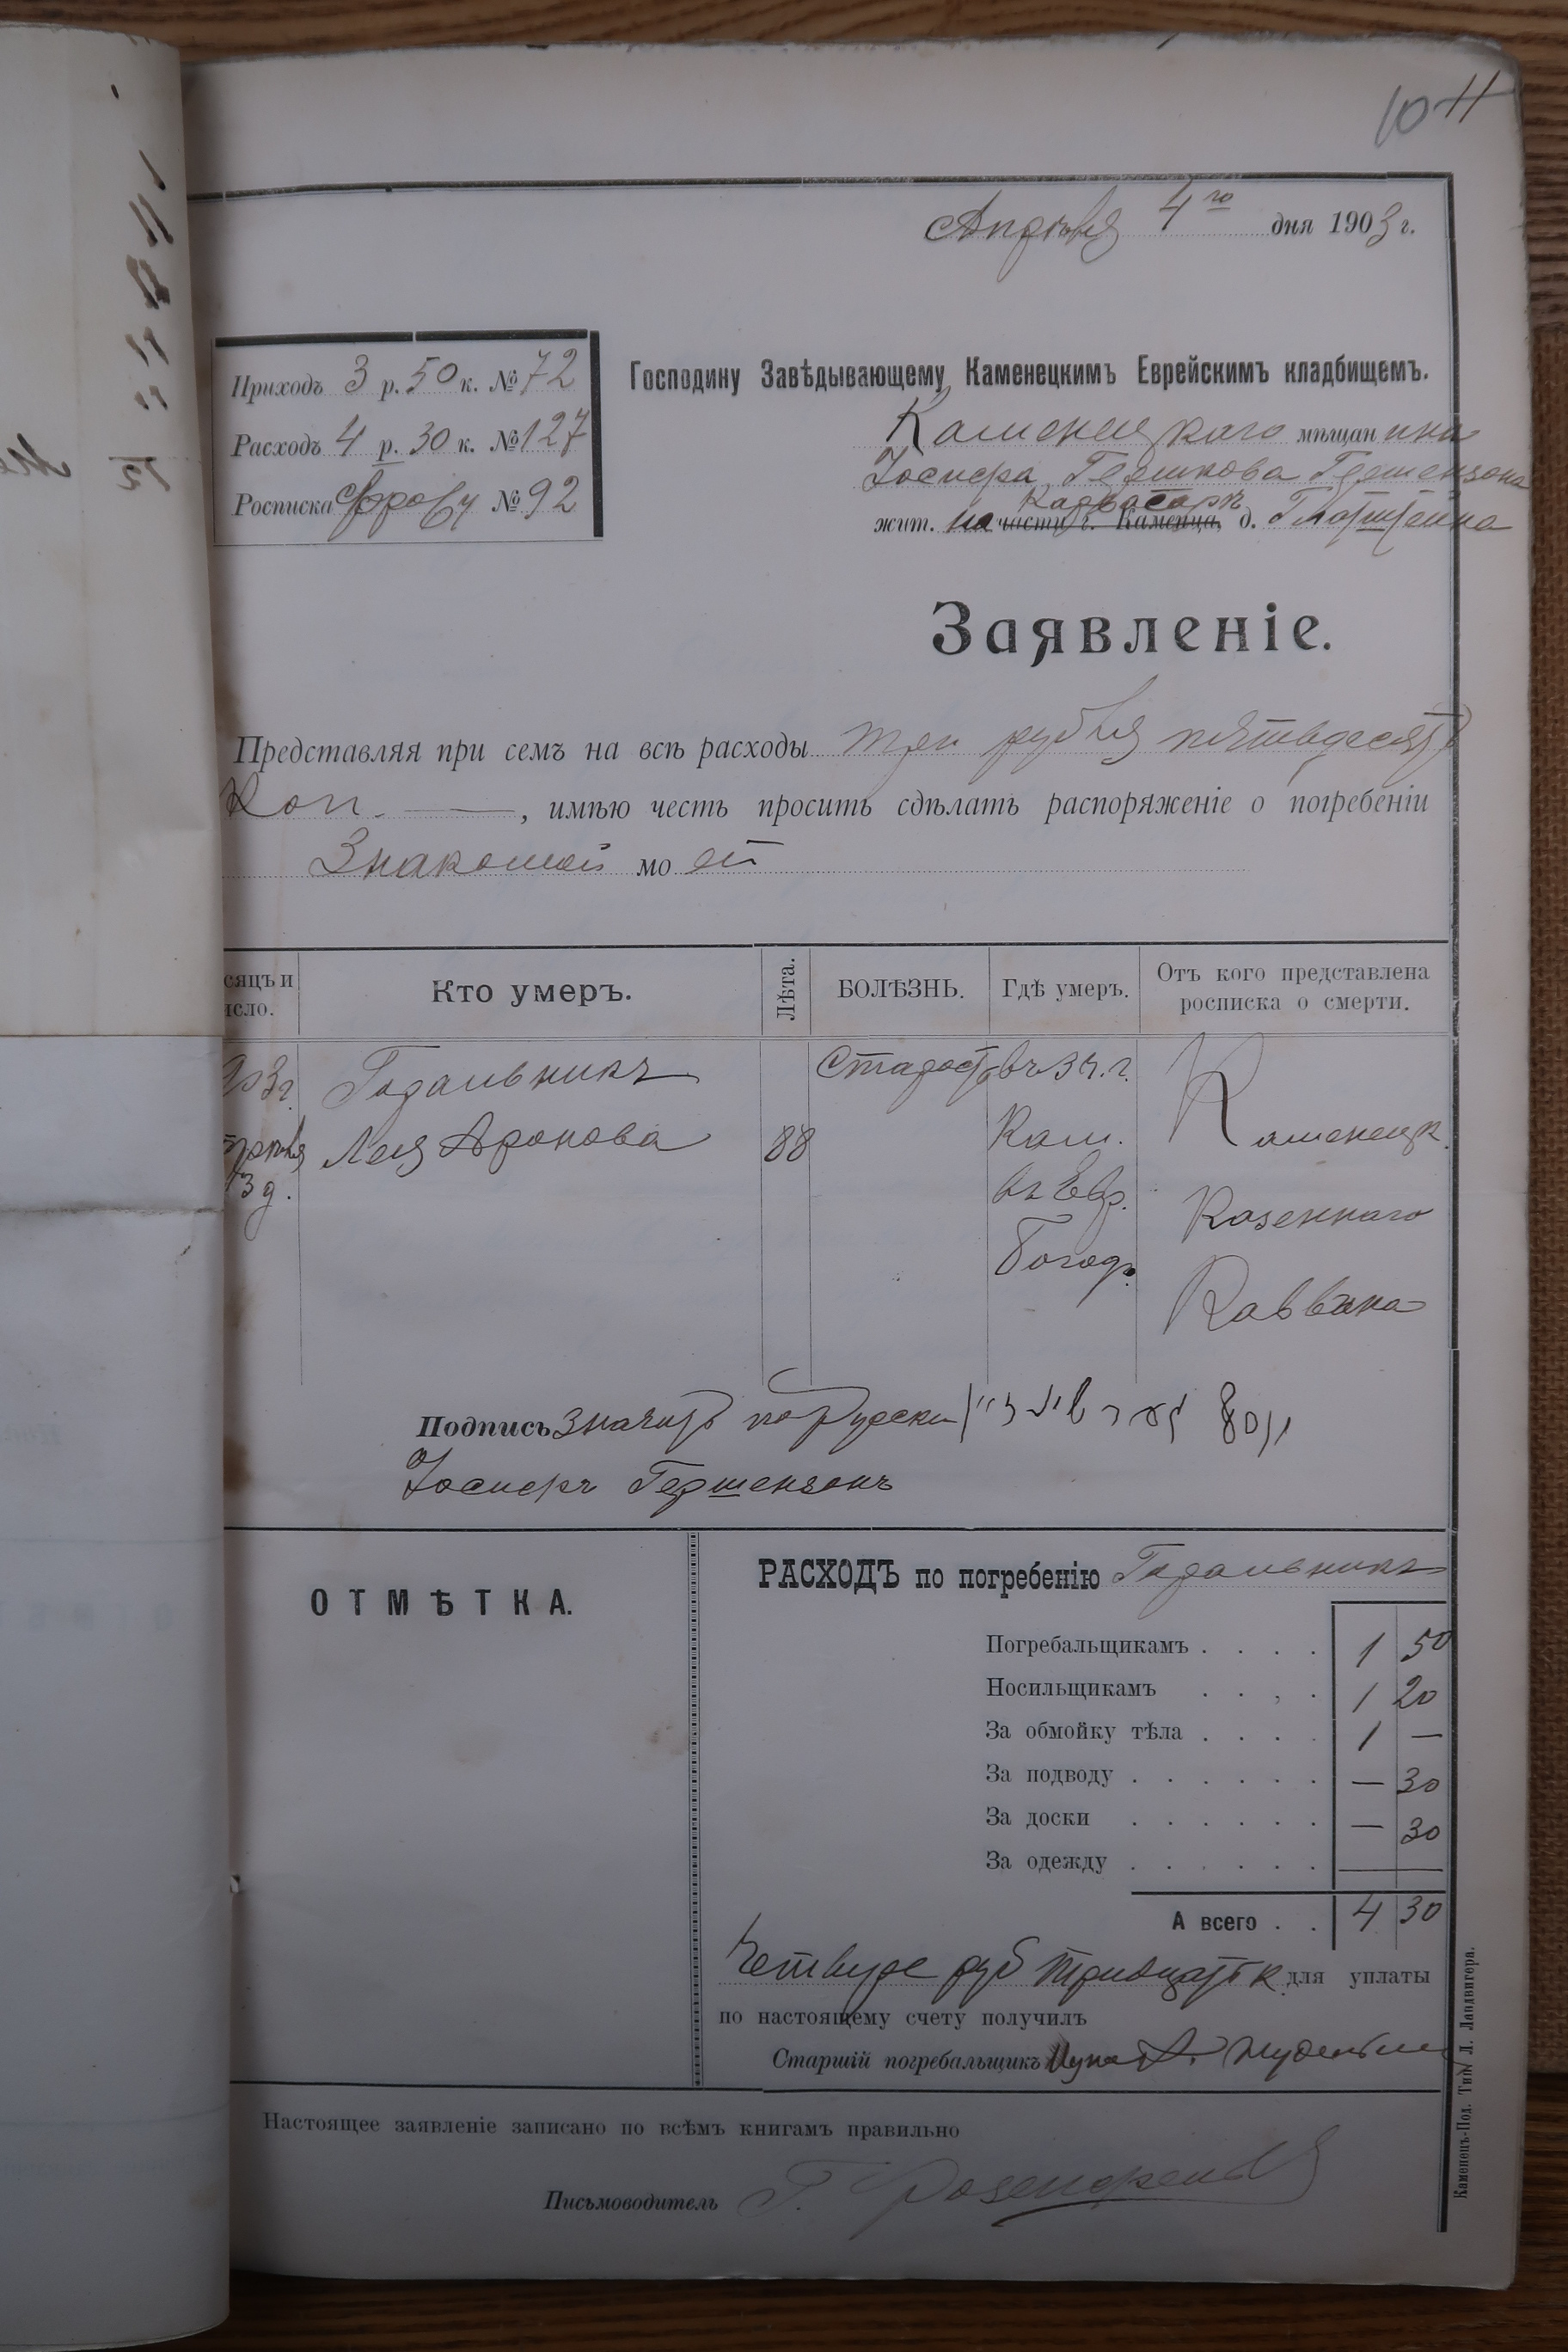 10 11
Апрѣля 4го дня 1903 г.
Приходъ 3 р. 50 к. № 72
Расходъ 4 р. 30 к. № 127
Росписка № 92
Господину Завѣдывающему Каменецкимъ Еврейскимъ кладбищемъ.
Каменецкаго мѣщанина
Іосифа Гершкова Гершензона
жит. на части г. Каменца, д.
Заявленіе.
Представляя при семъ на всѣ расходы три рубля пятьдесятъ
Коп. —, имѣю честь просить сдѣлать распоряженіе о погребеніи
Знакомой моей
сяцъ и исло. Кто умеръ. Лѣта. БОЛѢЗНЬ. Гдѣ умеръ. Отъ кого представлена росписка о смерти.
903г. старост въ 3 ч. г. Каменецк.
прѣля Лея Аронова 88 Кам.
3 д. въ Евр. Казеннаго
Богод. Раввина
Подпись значитъ по Русски
Іосифъ Гершензонъ
ОТМѢТКА.
РАСХОДЪ по погребенію
Погребальщикамъ . . . . 1 50
Носильщикамъ . . . . 1 20
За обмойку тѣла . . . . 1 —
За подводу . . . . . . — 30
За доски . . . . . . — 30
За одежду . . . . . . —
А всего . . 4 30
Четыре руб тридцать к. для уплаты
по настоящему счету получилъ
Старшій погребальщикъ
Настоящее заявленіе записано по всѣмъ книгамъ правильно
Письмоводитель Г. Розенфельд
Каменецъ-Под. Тип. Л. Ландвигера.